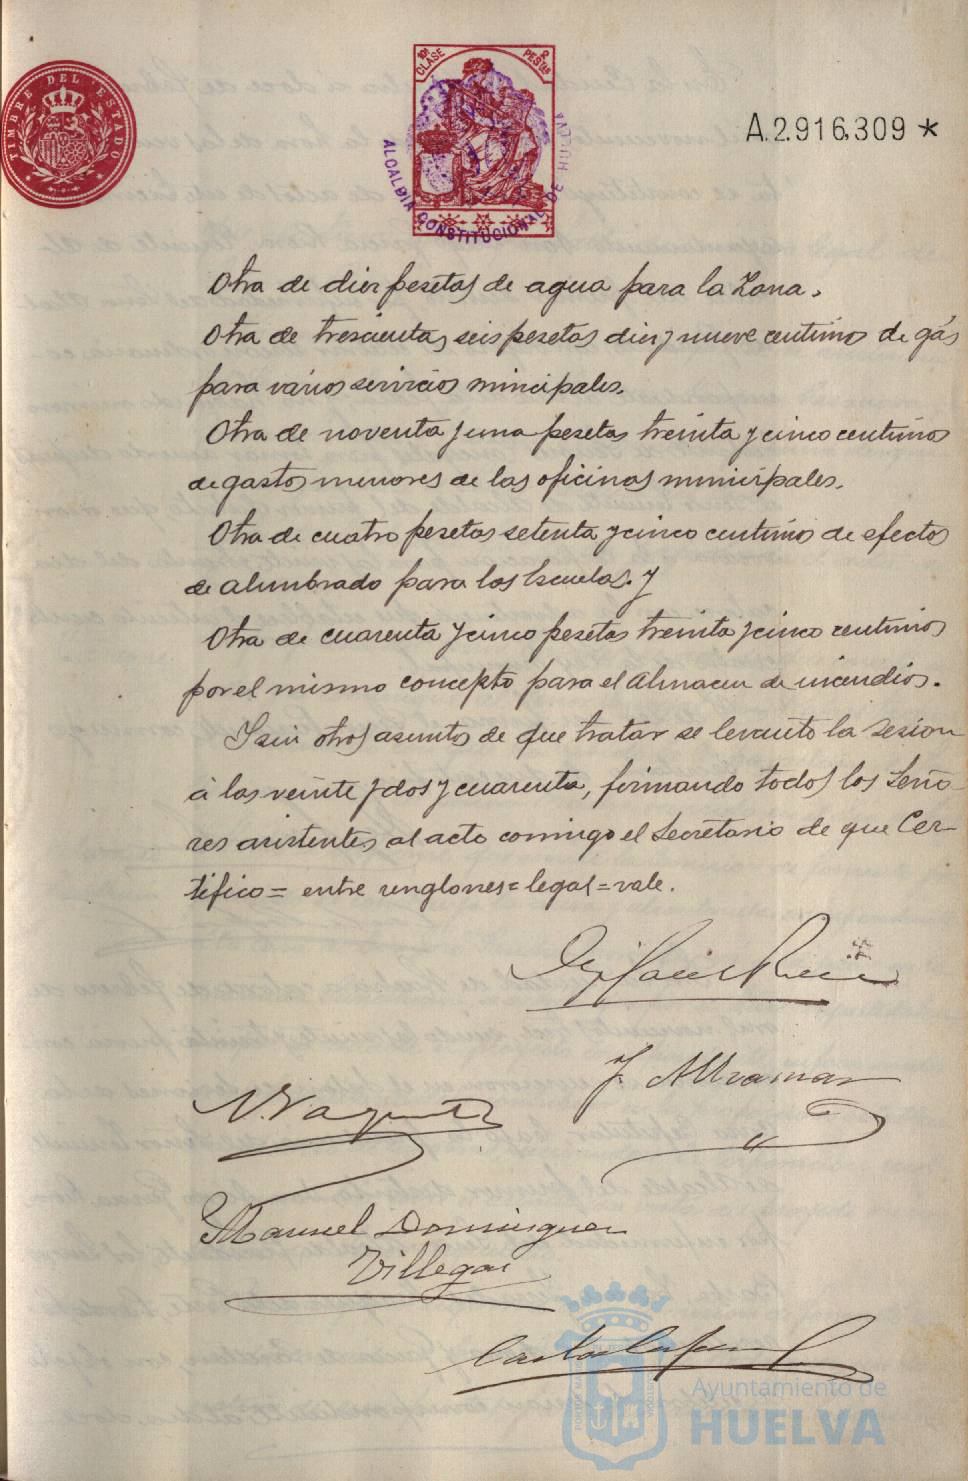 TIMBRE DEL ESTADO
10ª CLASE
2 PESTAS
ALCALDIA CONSTITUCIONAL DE HUELVA
A.2.916.309 *
Otra de diez pesetas de agua para la Zona.
Otra de trescientas seis pesetas diez y nueve centimos de gás
para vários servicios municipales.
Otra de noventa y una pesetas treinta y cinco centimos
de gastos menores de las oficinas municipales.
Otra de cuatro pesetas setenta y cinco centimos de efectos
de alumbrado para las Escuelas. y
Otra de cuarenta y cinco pesetas treinta y cinco centimos
por el mismo concepto para el Almacen de incendios.
Y sin otros asuntos de que tratar se levantó la sesion
á las veinte y dos y cuarenta, firmando todos los Seño-
res asistentes al acto conmigo el Secretario de que Cer-
tifico = entre renglones = legal = vale.
J. Alvamar
Manuel Dominguez
Villegas
Ayuntamiento de
HUELVA